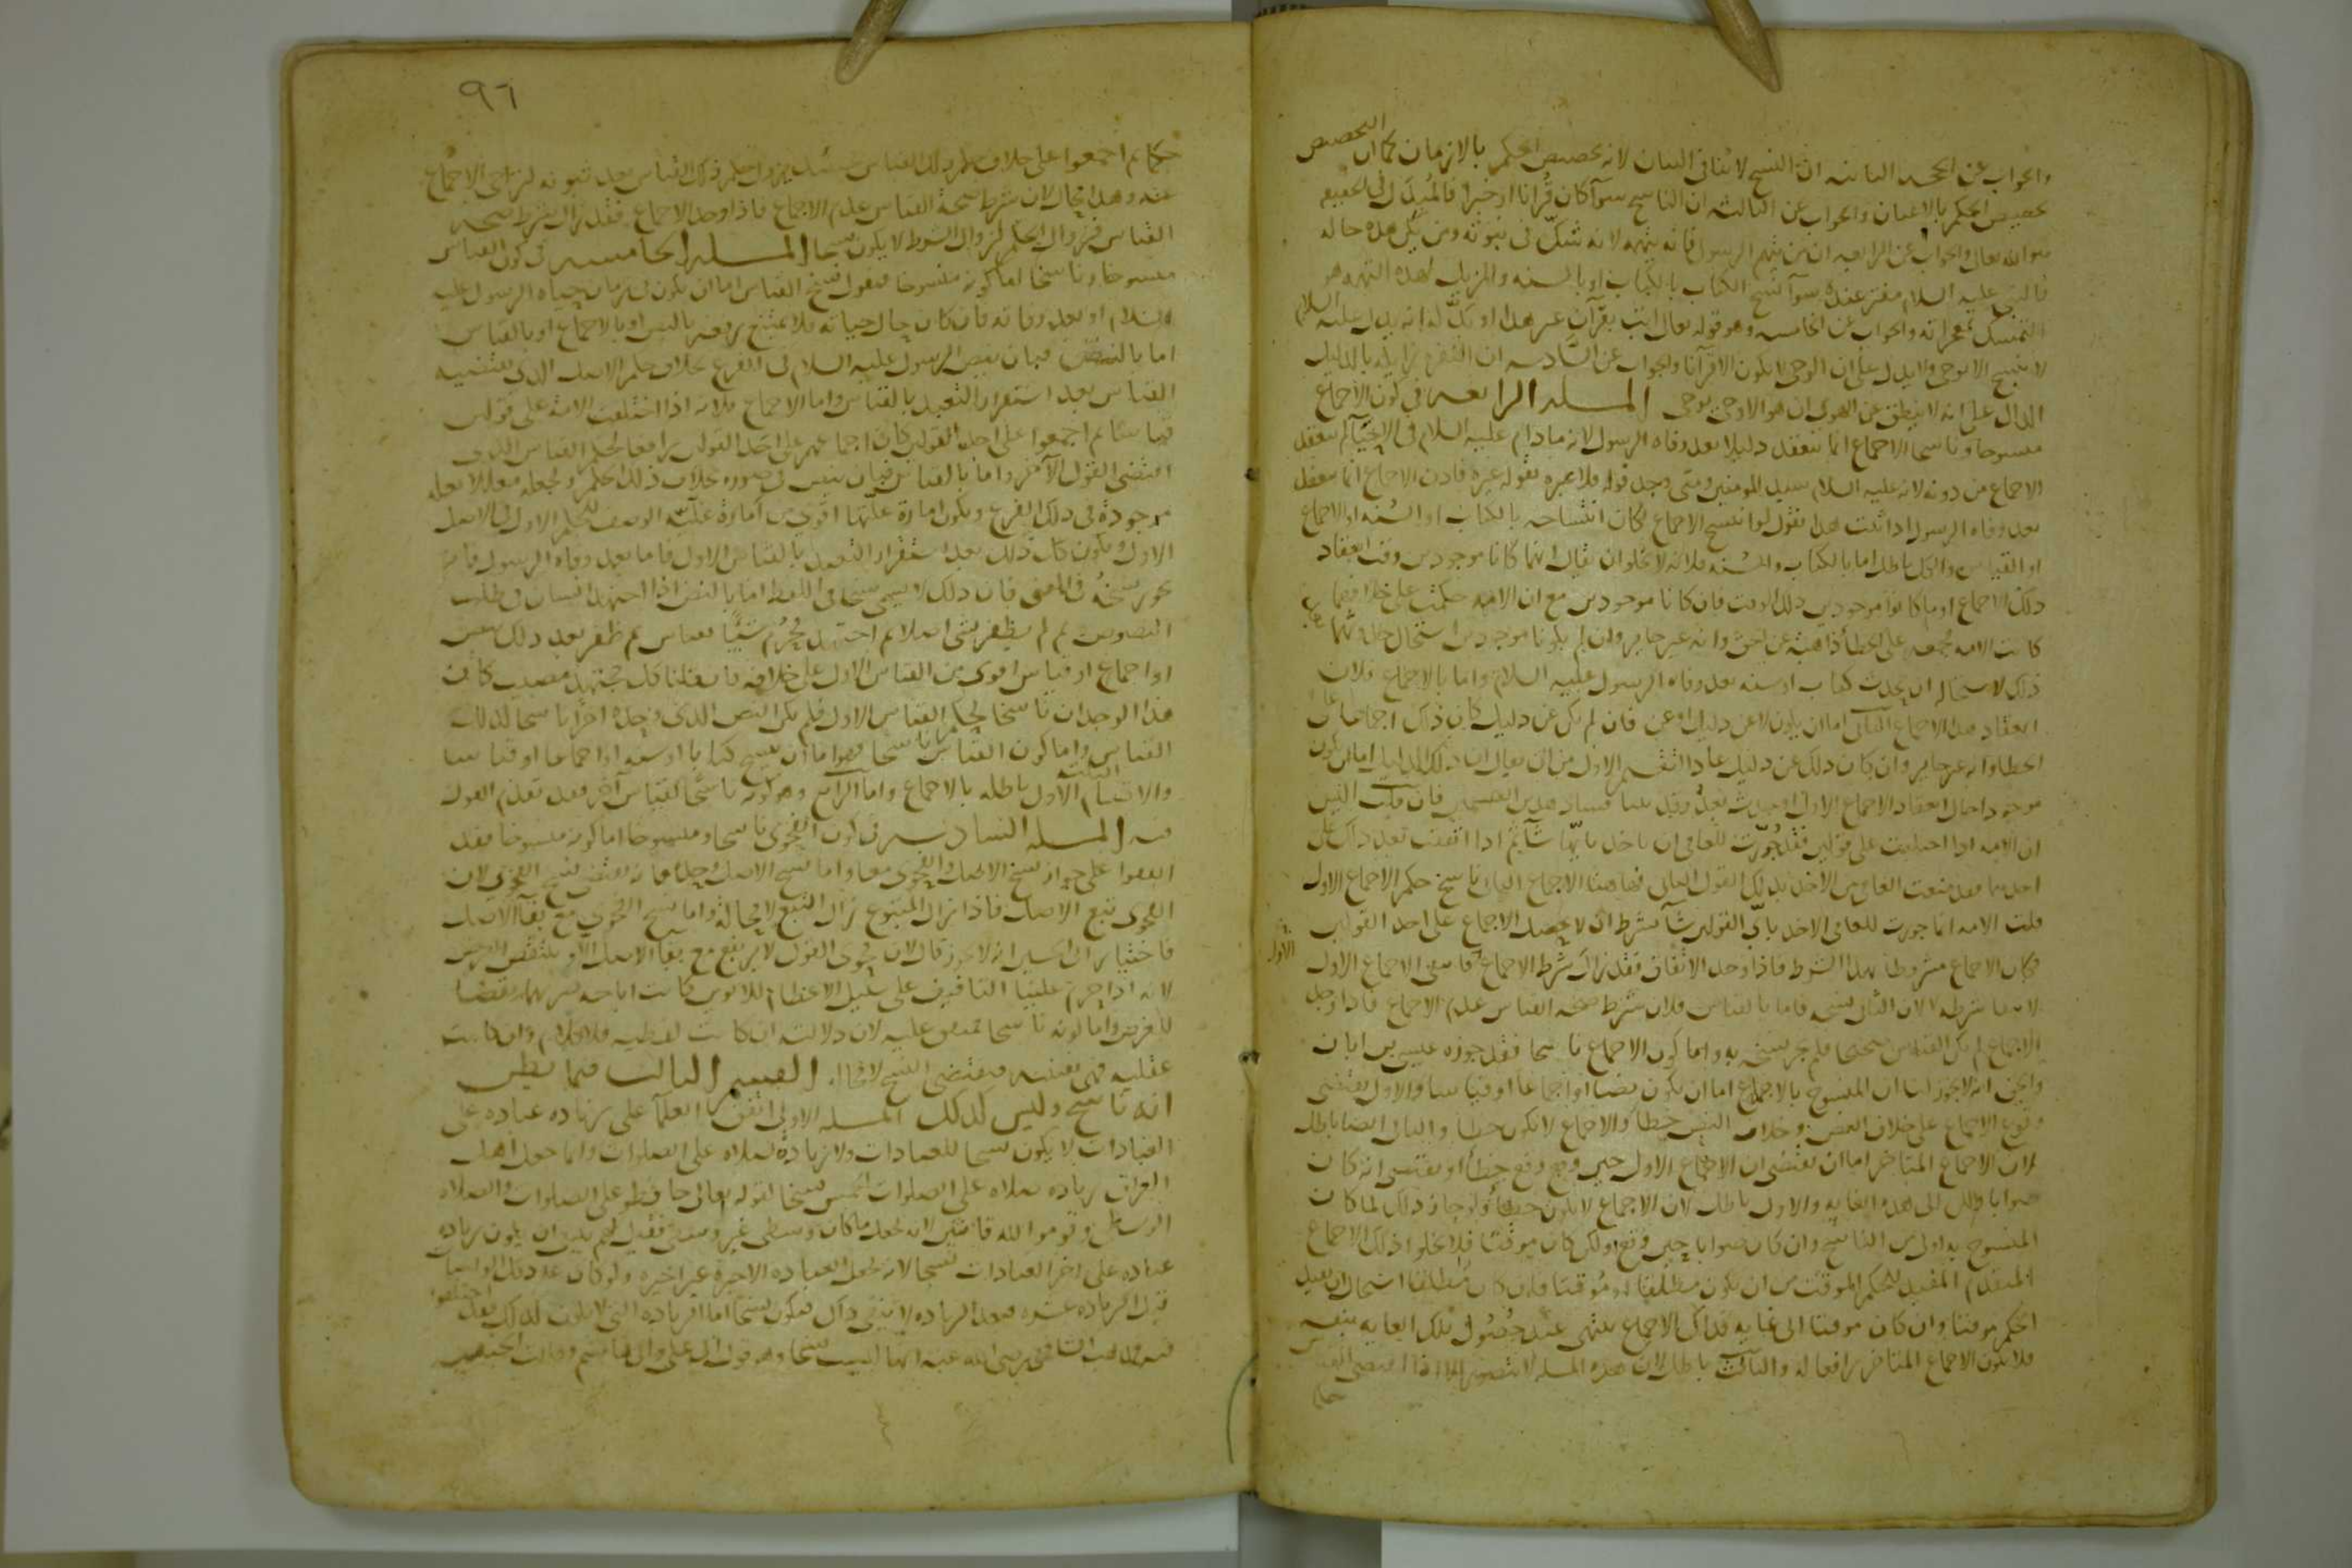 والجواب عن الحجه الثانيه ان النسخ لا ينافى البيان لانه تخصيص الحكم بالازمان كما ان التخصيص
تخصيص الحكم بالاعيان والجواب عن الثالثه ان الناسخ سوآ كان قُرانا او خبرا فالمُبدِل فى الحقيقه
هو الله تعالى والجواب عن الرابعه ان من يتهم الرسول فانه يتهمه لانه شكّ فى نبوته ومن يكن هذه حاله
فالنبى عليه السلام مفتر عنده سوآ نسخ الكتاب بالكتاب او بالسنه والمزيل لهذه التهمه هو
التمسك بمعجزاته والجواب عن الخامسه وهو قوله تعالى ايت بقرآن غير هذا او بدّله انه يدل على انه عليه السلام
لا ينسخ الا بوحى ولا يدل على ان الوحى لا يكون الا قرآنا والجواب عن السّادسه ان النفره زايله بالدليل
الدال على انه لا ينطق عن الهوى ان هو الا وحى يوحى المسله الرابعه فى كون الاجماع
منسوخا وناسخا الاجماع انما ينعقد دليلا بعد وفاه الرسول لانه مادام عليه السلام فى الاحيآ لم ينعقد
الاجماع من دونه لانه عليه السلام سيد المومنين ومتى وجد قوله فلا عبره بقول غيره فاذن الاجماع انما ينعقد
بعد وفاه الرسول اذا ثبت هذا نقول لو انتسخ الاجماع لكان انتساخه بالكتاب او السُنه او الاجماع
او القياس والكل باطل اما بالكتاب والسُنه فلانه لا يخلو ان يقال انهما كانا موجودين وقت انعقاد
ذلك الاجماع او ما كانوا موجودين ذلك الوقت فان كانا موجودين مع ان الامه حكمت على خلافهما
كانت الامه مجمعه على الخطا ذاهبة عن الحق وانه غير جايز وان لم يكونا موجودين استحال حدوثهما بعد
ذلك لاستحاله ان يحدث كتاب او سنه بعد وفاه الرسول عليه السلام واما بالاجماع فلان
انعقاد هذا الاجماع الثانى اما ان يكون لا عن دليل او عن دليل فان لم يكن عن دليل كان ذلك اجماعا على
الخطا وانه غير جايز وان كان ذلك عن دليل عاد التقسيم الاول من ان يقال ان ذلك الدليل اما ان يكون
موجودا حال انعقاد الاجماع الاول او حدث بعدُ وقد بينا فساد هذين القسمين فان قلت اليس
ان الامه اذا اختلفت على قولين فقد جُوّزت للعامى ان ياخذ بايّهما شآ ثم اذا اتفقت بعد ذلك على
احدهما فقد منعت العامى من الاخذ بذلك القول الثانى فهاهنا الاجماع الثانى ناسخ حكم الاجماع الاول
قلت الامه انما جوزت للعامى الاخذ باىّ القولين شآ بشرط ان لا يحصل الاجماع على احد القولين
فكان الاجماع الاول مشروطا بهذا الشرط فاذا وجد الاتفاق فقد زال شرط الاجماع فانتفى الاجماع الاول
لانتفا شرطه لا لان الثانى نسخه فاما بالقياس فلان شرط صحه القياس عدم الاجماع فاذا وجد
الاجماع لم يكن القياس صحيحا فلم يجز نسخه به واما كون الاجماع ناسخا فقد جوزه عيسى بن ابان
والحق انه لا يجوز لنا ان المنسوخ بالاجماع اما ان يكون نصا او اجماعا او قياسا والاول يقتضى
وقوع الاجماع على خلاف النص وخلاف النص خطا والاجماع لا يكون خطا والثانى ايضا باطل
لان الاجماع المتاخر اما ان يقتضى ان الاجماع الاول حين وقع وقع خطأ او يقتضى انه كان
صوابا ولكن الى هذه الغايه والاول باطل لان الاجماع لا يكون خطأ ولو جاز ذلك لما كان
المنسوخ به اولى من الناسخ وان كان صوابا حين وقع ولكن كان موقتا فلا يخلو ذلك الاجماع
المتقدم المفيد للحكم الموقت من ان يكون مطلقا او مُوقتا فان كان مُطلقا استحال ان يفيد
الحكم موقتا وان كان موقتا الى غايه فذاك الاجماع ينتهى عند حُصُول تلك الغايه بنفسه
فلا يكون الاجماع المتاخر رافعا له والثالث باطل لان هذه المسله لا تتصور الا اذا اقتضى القياس
حكما
٩٦
حكما ثم اجمعوا على خلاف حكم ذلك القياس فحينئذ يزول حكم ذلك القياس بعد ثبوته لتراخى الاجماع
عنه وهذا محال لان شرط صحة القياس عدم الاجماع فاذا وجد الاجماع فقد زال شرط صحه
القياس فزوال الحكم لزوال الشرط لا يكون نسخا المسله الخامسه فى كون القياس
منسوخا وناسخا اما كونه منسوخا فنقول نسخ القياس اما ان يكون فى زمان حياه الرسول عليه
السلام او بعد وفاته فان كان حال حياته فلا يمتنع رفعه بالنص او بالاجماع او بالقياس
اما بالنص فبان ينص الرسول عليه السلام فى الفرع بخلاف حكم الاصل الذى يقتضيه
القياس بعد استقرار التعبد بالقياس واما الاجماع فلانه اذا اختلفت الامة على قولين
قياسا ثم اجمعوا على احد القولين كان اجماعهم على احد القولين رافعا لحكم القياس الذى
اقتضى القول الآخر واما بالقياس فبان ينص فى صوره بخلاف ذلك الحكم ويجعله معللا بعله
موجودة فى ذلك الفرع ويكون امارة علّيتها اقوى من امارة علّيّه الوصف للحكم الاول فى الاصل
الاول ويكون كل ذلك بعد استقرار التعبد بالقياس الاول فاما بعد وفاه الرسول فانه
يجوز نسخُه فى المعنى فان ذلك لا يسمى نسخا فى اللفظ اما بالنص اذا اجتهد انسان فى طلب
النصوص ثم لم يظفر بشى اصلا ثم اجتهد فحرّم شيئًا بقياس ثم ظفر بعد ذلك بنص
او اجماع او قياس اقوى من القياس الاول على خلافه فان قلنا كل مجتهد مصيب كان
هذا الوجدان ناسخا لحكم القياس الاول فلم يكن النص الذى وجده اخرا ناسخا لذلك
القياس واما كون القياس ناسخا فهو اما ان ينسخ كتابا او سنه او اجماعا او قياسا
والاقسام الثلثه الأول باطله بالاجماع واما الرابع وهو كونه ناسخًا لقياس آخر فقد تقدم القول
فيه المسله السادسه فى كون الفحوى ناسخا ومنسوخا اما كونه منسوخا فقد
اتفقوا على جواز نسخ الاصل والفحوى معا واما نسخ الاصل وحده فانه يقتضى نسخ الفحوى لان
الفحوى تبع الاصل فاذا زال المتبوع زال التبع لا محالة واما نسخ الفحوى مع بقآ الاصل
فاختيار ابى الحسين انه لا يجوز قال لان فحوى القول لا يرتفع مع بقآ الاصل الا وينتقض الغرض
لانه اذا حرم علينا التافيف على سبيل الاعظام للابوين كانت اباحه ضربهما نقضا
للغرض واما كونه ناسخا فمتفق عليه لان دلالته ان كانت لفظيه فلا كلام وان كانت
عقليه فهى يقينيه فيقتضى النسخ لا محاله القسم الثالث فيما يظن
انه ناسخ وليس كذلك المسله الاولى اتفق العلمآ على زياده عباده على
العبادات لا يكون نسخا للعبادات ولا زيادة صلاه على الصلوات وانما جعل اهل
العراق زياده صلاه على الصلوات الخمس نسخا لقوله تعالى حافظو على الصلوات والصلاه
الوسطى وقوموا لله قانتين لانه يجعل ما كان وسطى غير وسطى فقيل لهم ينبغى ان يكون زياده
عباده على اخر العبادات نسخا لانه يجعل العباده الاخيرة غير اخيره ولو كان عدد كل الواجبات
قبل الزياده عشره فبعد الزياده لا يبقى ذلك فيكون نسخًا اما الزياده التى لا تكون كذلك فقد اختلفوا
فيه فمذهب الشافعى رضى الله عنه انها ليست نسخا وهو قول ابى على وابى هاشم وقالت الحنفيه